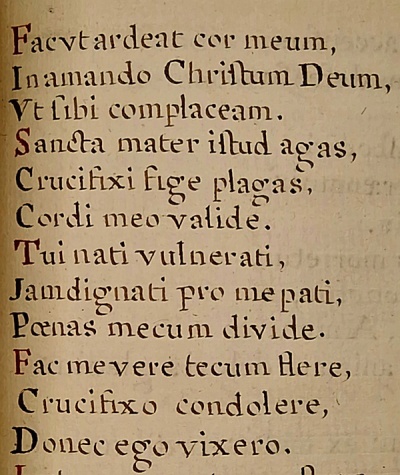 Fac vt ardeat cor meum,
In amando Chriſtum Deum,
Vt ſibi complaceam.
Sancta mater iſtud agas,
Crucifixi fige plagas,
Cordi meo valide.
Tui nati vulnerati,
Jam dignati pro me pati,
Pœnas mecum divide.
Fac me vere tecum flere,
Crucifixo condolere,
Donec ego vixero.